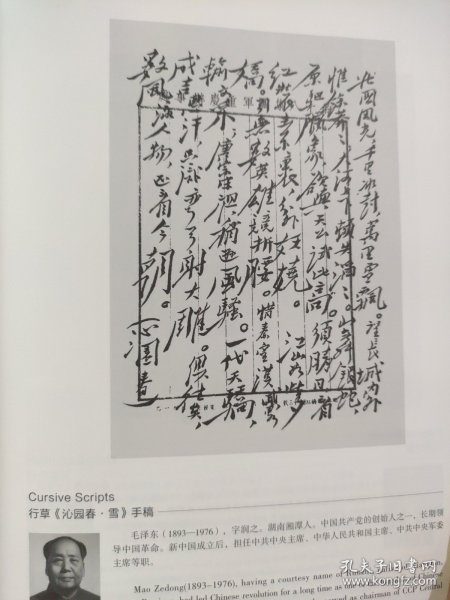 北國風光，千里冰封，萬里雪飄。望長城內外，
惟餘莽々；大河上下，頓失滔々。山舞銀蛇，
原驅臘象，欲與天公試比高。須晴日，看
紅裝素裹，分外妖嬈。江山如此多
嬌，引無數英雄競折腰。惜秦皇漢武，略
輸文采；唐宗宋祖，稍遜風騷。一代天驕，
成吉思汗，只識彎弓射大雕。俱往矣，
數風流人物，還看今朝。沁園春
Cursive Scripts
行草《沁园春·雪》手稿
毛泽东（1893—1976），字润之，湖南湘潭人。中国共产党的创始人之一，长期领
导中国革命。新中国成立后，担任中共中央主席、中华人民共和国主席、中共中央军委
主席等职。
Mao Zedong(1893-1976), having a courtesy name of Runzhi,
had led Chinese revolution for a long time as the
as chairman of CCP Central
孔夫子旧书网